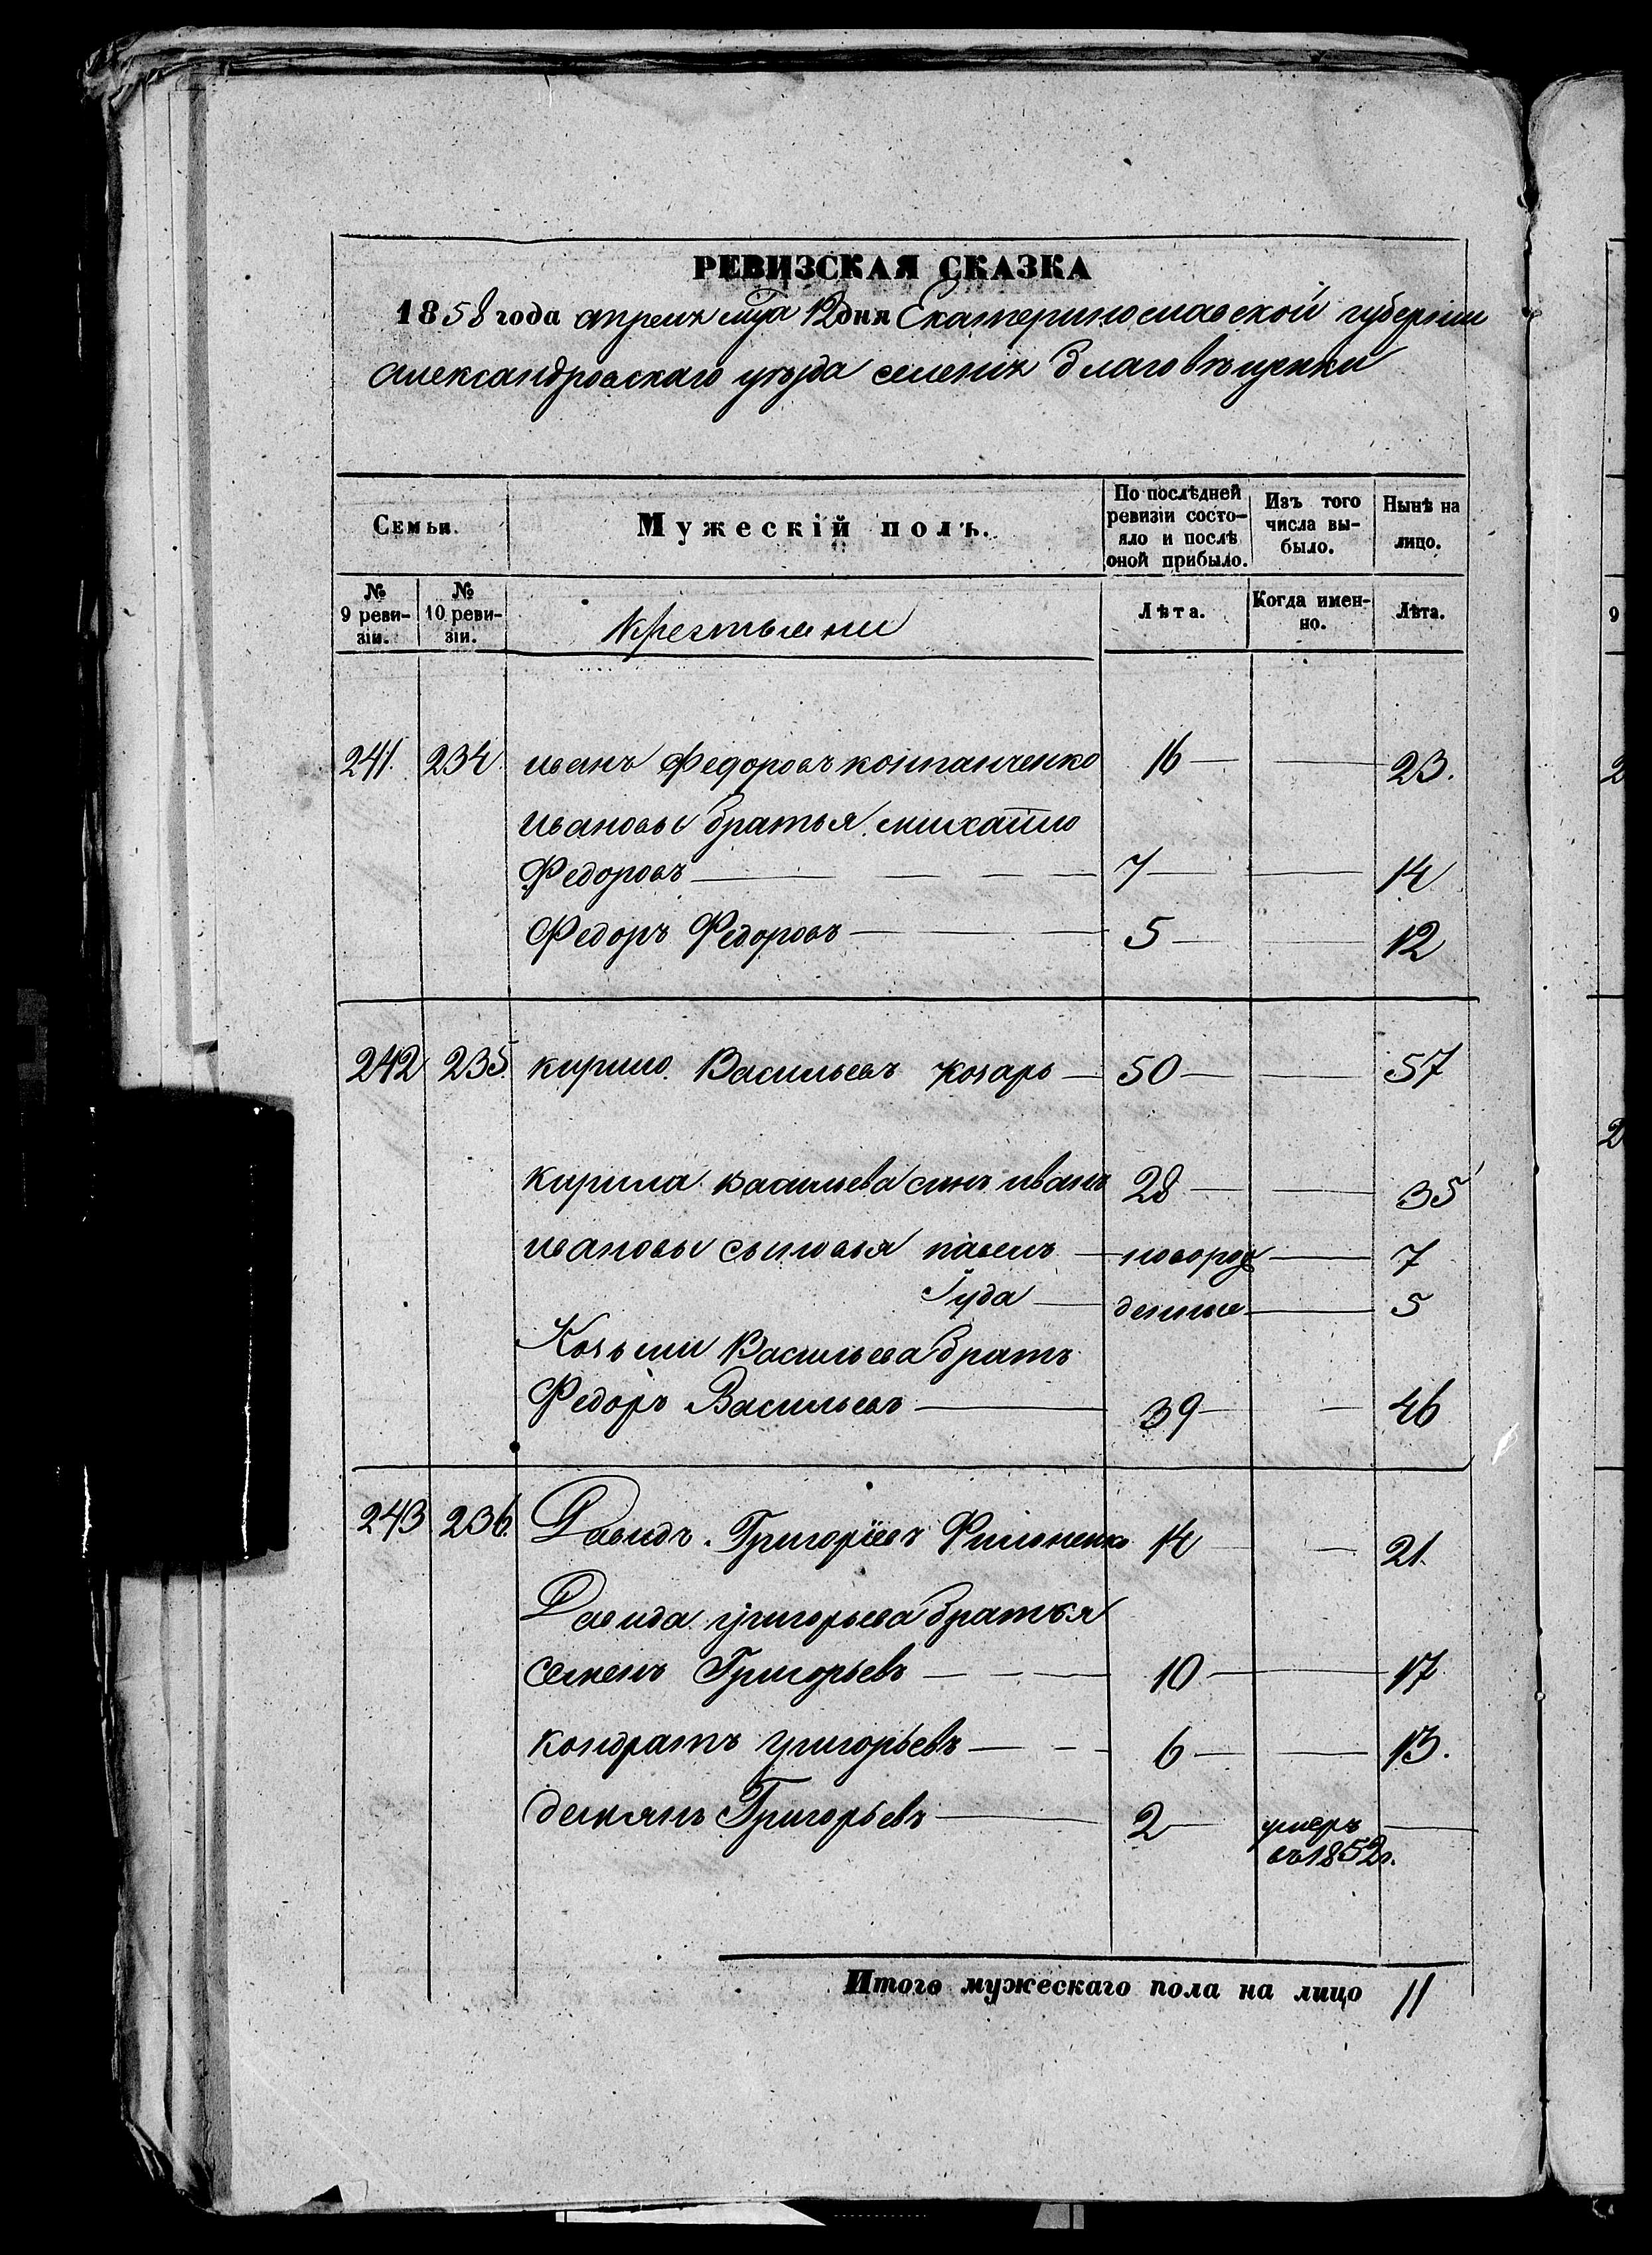 РЕВИЗСКАЯ СКАЗКА
1858 года апреля м-ца 12 дня Екатеринославской губерніи
Александровскаго уѣзда селенія Благовѣщенки
Семьи.
Мужескій полъ.
По послѣдней ревизіи состо-
яло и послѣ оной прибыло.
Изъ того числа вы-
было.
Нынѣ на лицо.
№ 9 реви-
зіи.
№ 10 реви-
зіи.
Крестьяни
Лѣта.
Когда имен-
но.
Лѣта.
241. 234 иванъ Федоровъ контанченко 16 — — 23.
ивановы братья михайло
Федоровъ — 7 — — 14
Федоръ Федоровъ — 5 — — 12
242 235. кирило Васильевъ козарь — 50 — — 57
кирила васильева синъ иванъ 28 — — 35
ивановы сыновья павелъ — новорож — 7
Іуда — денные — 5
Козьми Васильева братъ
Федоръ Васильевъ — 39 — — 46
243 236. Давидъ Григоріевъ Филоненко 14 — 21.
Давида григорьева братья
семенъ Григорьевъ — 10 — — 17
кондратъ григорьевъ — 6 — — 13.
демянъ Григорьевъ — 2 — умеръ —
въ 1852 г.
Итого мужескаго пола на лицо 11
9
2
2